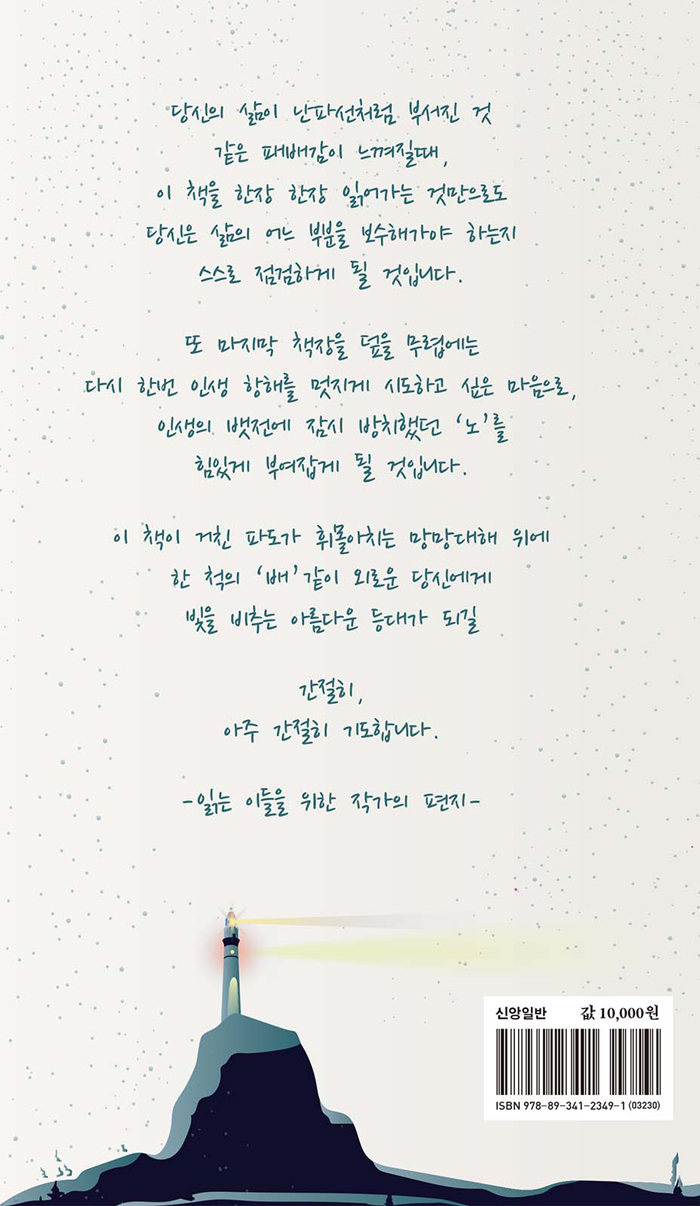 당신의 삶이 난파선처럼 부서진 것
같은 패배감이 느껴질때,
이 책을 한장 한장 읽어가는 것만으로도
당신은 삶의 어느 부분을 보수해가야 하는지
스스로 점검하게 될 것입니다.
또 마지막 책장을 덮을 무렵에는
다시 한번 인생 항해를 멋지게 시도하고 싶은 마음으로,
인생의 뱃전에 잠시 방치했던 ‘노’를
힘있게 부여잡게 될 것입니다.
이 책이 거친 파도가 휘몰아치는 망망대해 위에
한 척의 ‘배’같이 외로운 당신에게
빛을 비추는 아름다운 등대가 되길
간절히,
아주 간절히 기도합니다.
-읽는 이들을 위한 작가의 편지-
신앙일반 값 10,000원
ISBN 978-89-341-2349-1 (03230)